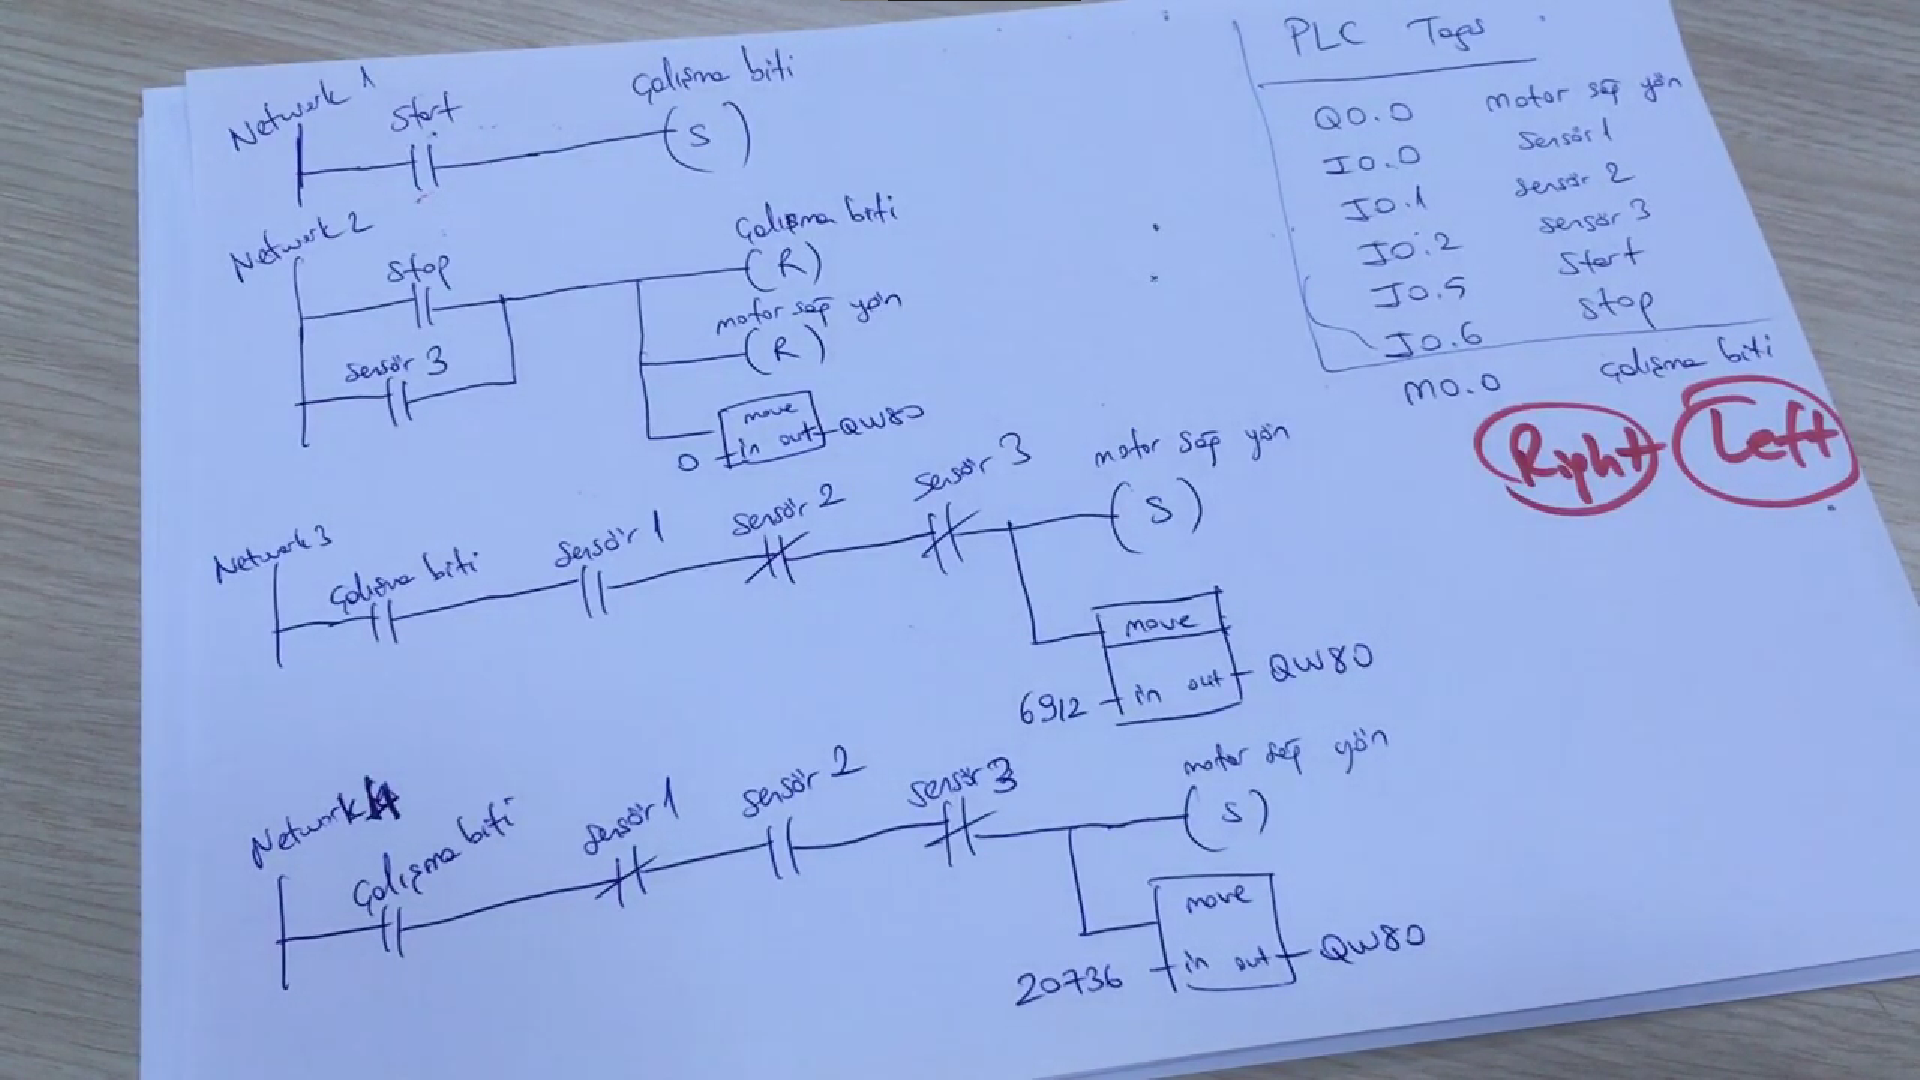 Network 1
Start
Çalışma biti
(S)
Network 2
Stop
Çalışma biti
(R)
Sensör 3
motor sağ yön
(R)
move
in out
0
QW80
Network 3
Çalışma biti
Sensör 1
Sensör 2
Sensör 3
motor sağ yön
(S)
move
6912
in out
QW80
Network 4
Çalışma biti
Sensör 1
Sensör 2
Sensör 3
motor sağ yön
(S)
move
20736
in out
QW80
PLC Tags
Q0.0 motor sağ yön
I0.0 Sensör 1
I0.1 Sensör 2
I0.2 Sensör 3
I0.5 Start
I0.6 Stop
M0.0 Çalışma biti
Right Left